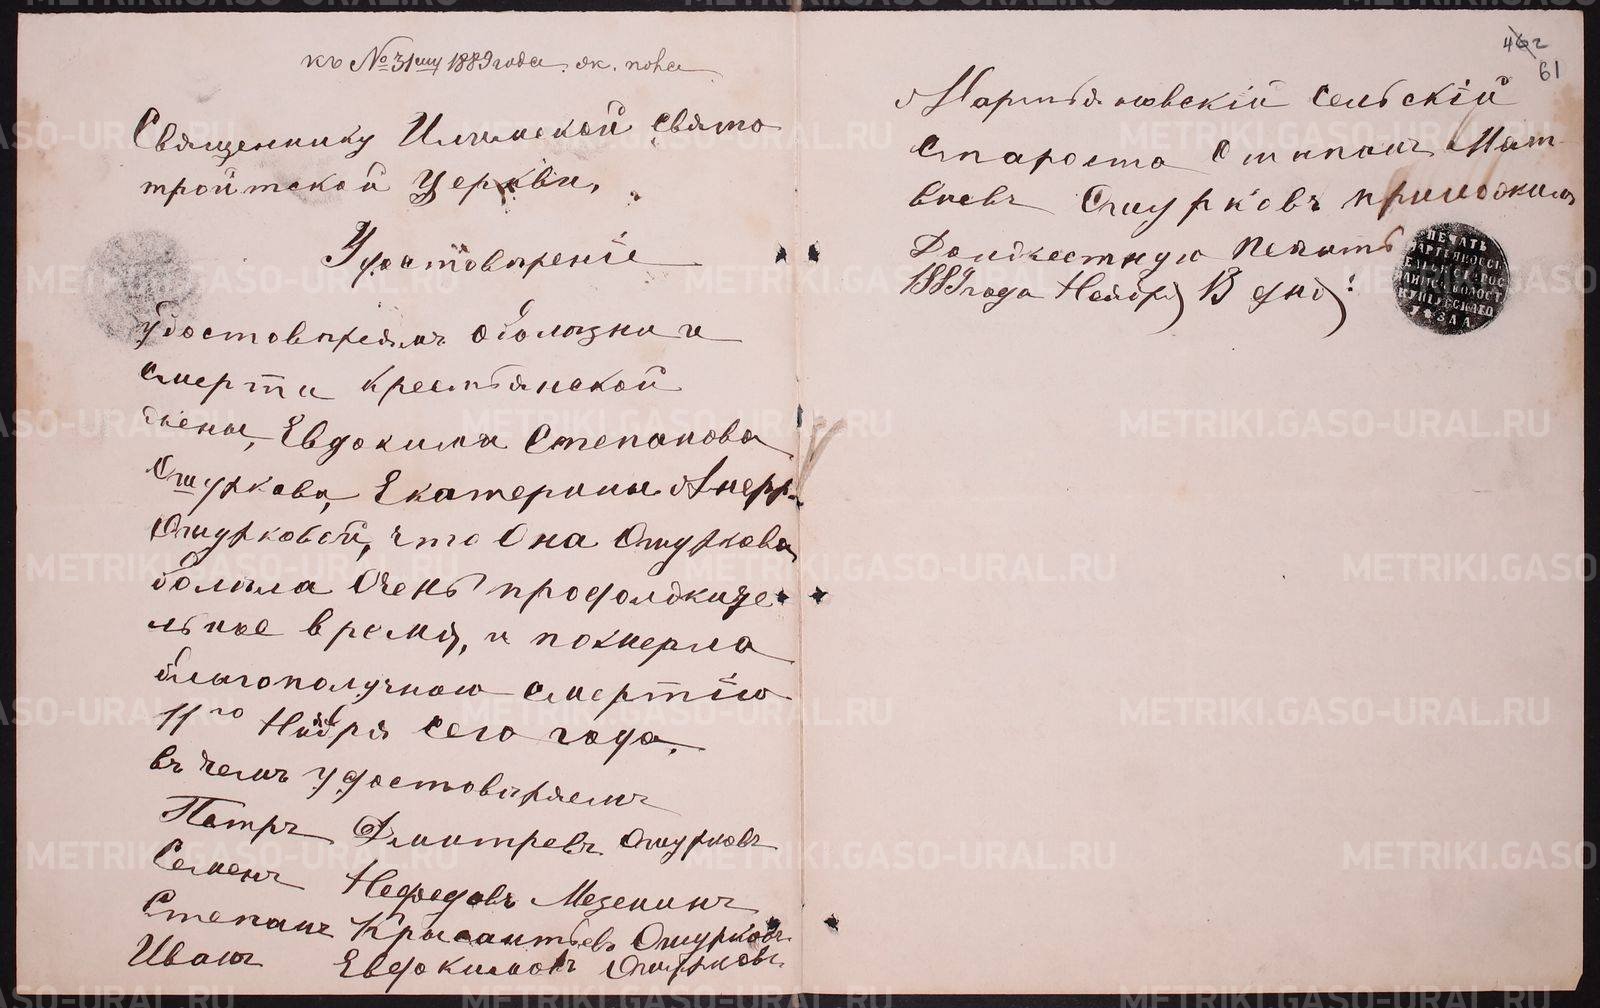 къ № 31му 1889 года.
Священнику Илимской свято
троитской Церкви,
Удостовѣреніе
удостовѣряемъ оболѣзни и
смерти крестьянской
жены, Евдокима Степанова
Ошуркова, Екатерины
Ошурковой, что Она Ошуркова
болѣла Очень продолжите
льное время, и померла
благополучною смертію
11го Ноября сего года,
въ чемъ удостовѣряемъ
Петръ Дмитревъ Ошурковъ
Семенъ Нефедовъ Мезенинъ
Степанъ Крысантьевъ Ошурковъ
Иванъ Евдокимовъ Ошурковъ
46г
61
Мартьяновскій сельскій
Староста Мат
вѣевъ Ошурковъ приложилъ
Должестную печать
1889 года Ноября 13 дня
ПЕЧАТЬ
УѢЗДА
METRIKI.GASO-URAL.RU